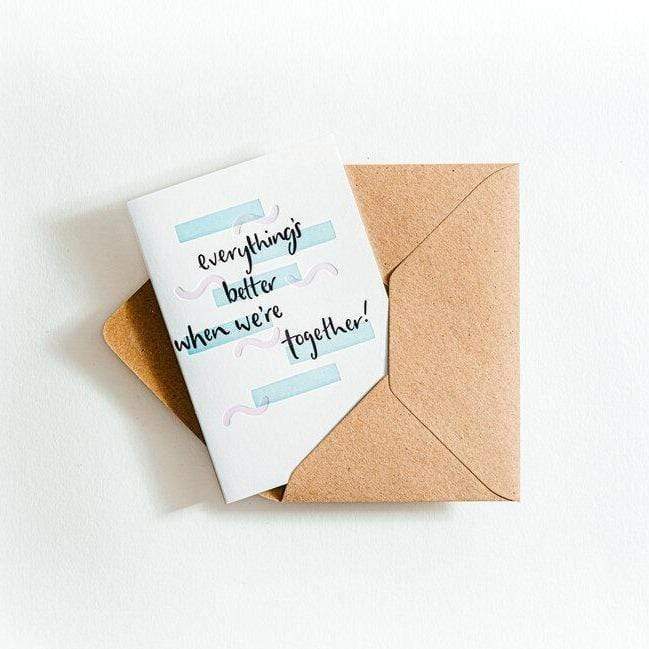 everything's
better
when we're
together!